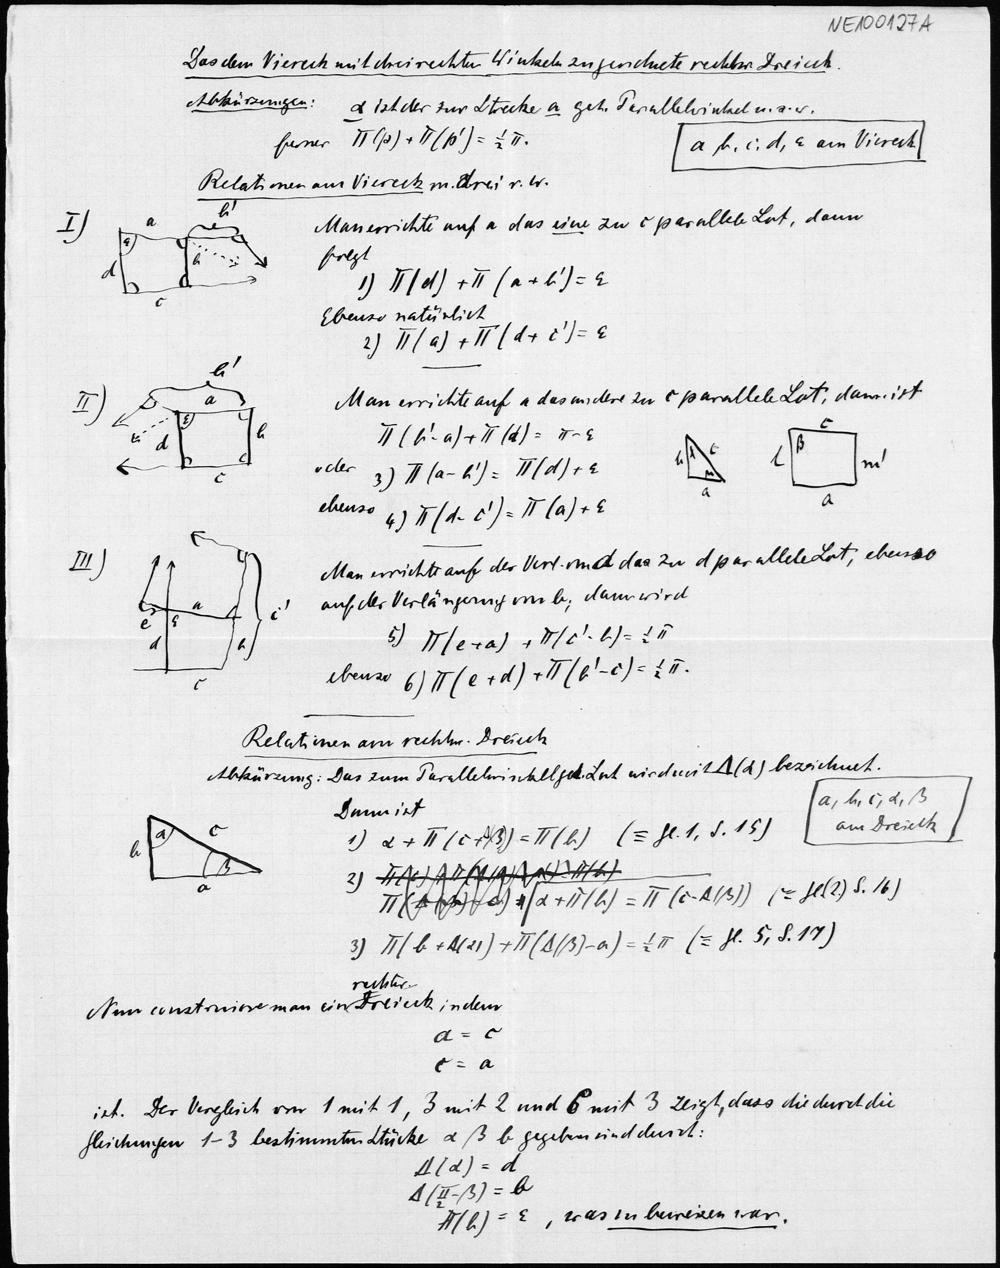 NE100127A
Das dem Viereck mit drei rechten Winkeln zugeordnete rechtw. Dreieck.
Abkürzungen: α ist der zur Strecke a geh. Parallelwinkel u.s.w.
ferner Π(p) + Π(p') = ½ π.
a, b, c, d, ε am Viereck
Relationen am Viereck m. drei r. W.
I)
a
b'
ε
d
b
c
Man errichte auf a das eine zu c parallele Lot, dann
folgt
1) Π(d) + Π(a + b') = ε
Ebenso natürlich
2) Π(a) + Π(d + c') = ε
II)
b'
a
ε
d
b
c
Man errichte auf a das andere zu c parallele Lot, dann ist
Π(b' - a) + Π(d) = π - ε
oder 3) Π(a - b') = Π(d) + ε
ebenso 4) Π(d - c') = Π(a) + ε
b
λ
c
a
c
β
l
m'
a
III)
a
e
ε
c'
d
b
c
Man errichte auf der Verl. von a das zu d parallele Lot, ebenso
auf der Verlängerung von b; dann wird
5) Π(e + a) + Π(c' - b) = ½ π
ebenso 6) Π(e + d) + Π(b' - c) = ½ π.
Relationen am rechtw. Dreieck
Abkürzung: Das zum Parallelwinkel geh. Lot wird mit Δ(α) bezeichnet.
Dann ist
a, b, c, α, β
am Dreieck
b
α
c
β
a
1) α + Π(c + Δ(β)) = Π(b) (≡ Gl. 1, S. 15)
2) α + Π(b) = Π(c - Δ(β)) (≡ Gl(2) S. 16)
3) Π(b + Δ(α)) + Π(Δ(β) - a) = ½ π (≡ Gl. 5, S. 17)
Nun construiere man ein rechtw. Dreieck, indem
a = c
c = a
ist. Der Vergleich von 1 mit 1, 3 mit 2 und 6 mit 3 zeigt, dass die durch die
Gleichungen 1-3 bestimmten Stücke α β b gegeben sind durch:
Δ(α) = d
Δ(π/2 - β) = b
Π(b) = ε, was zu beweisen war.